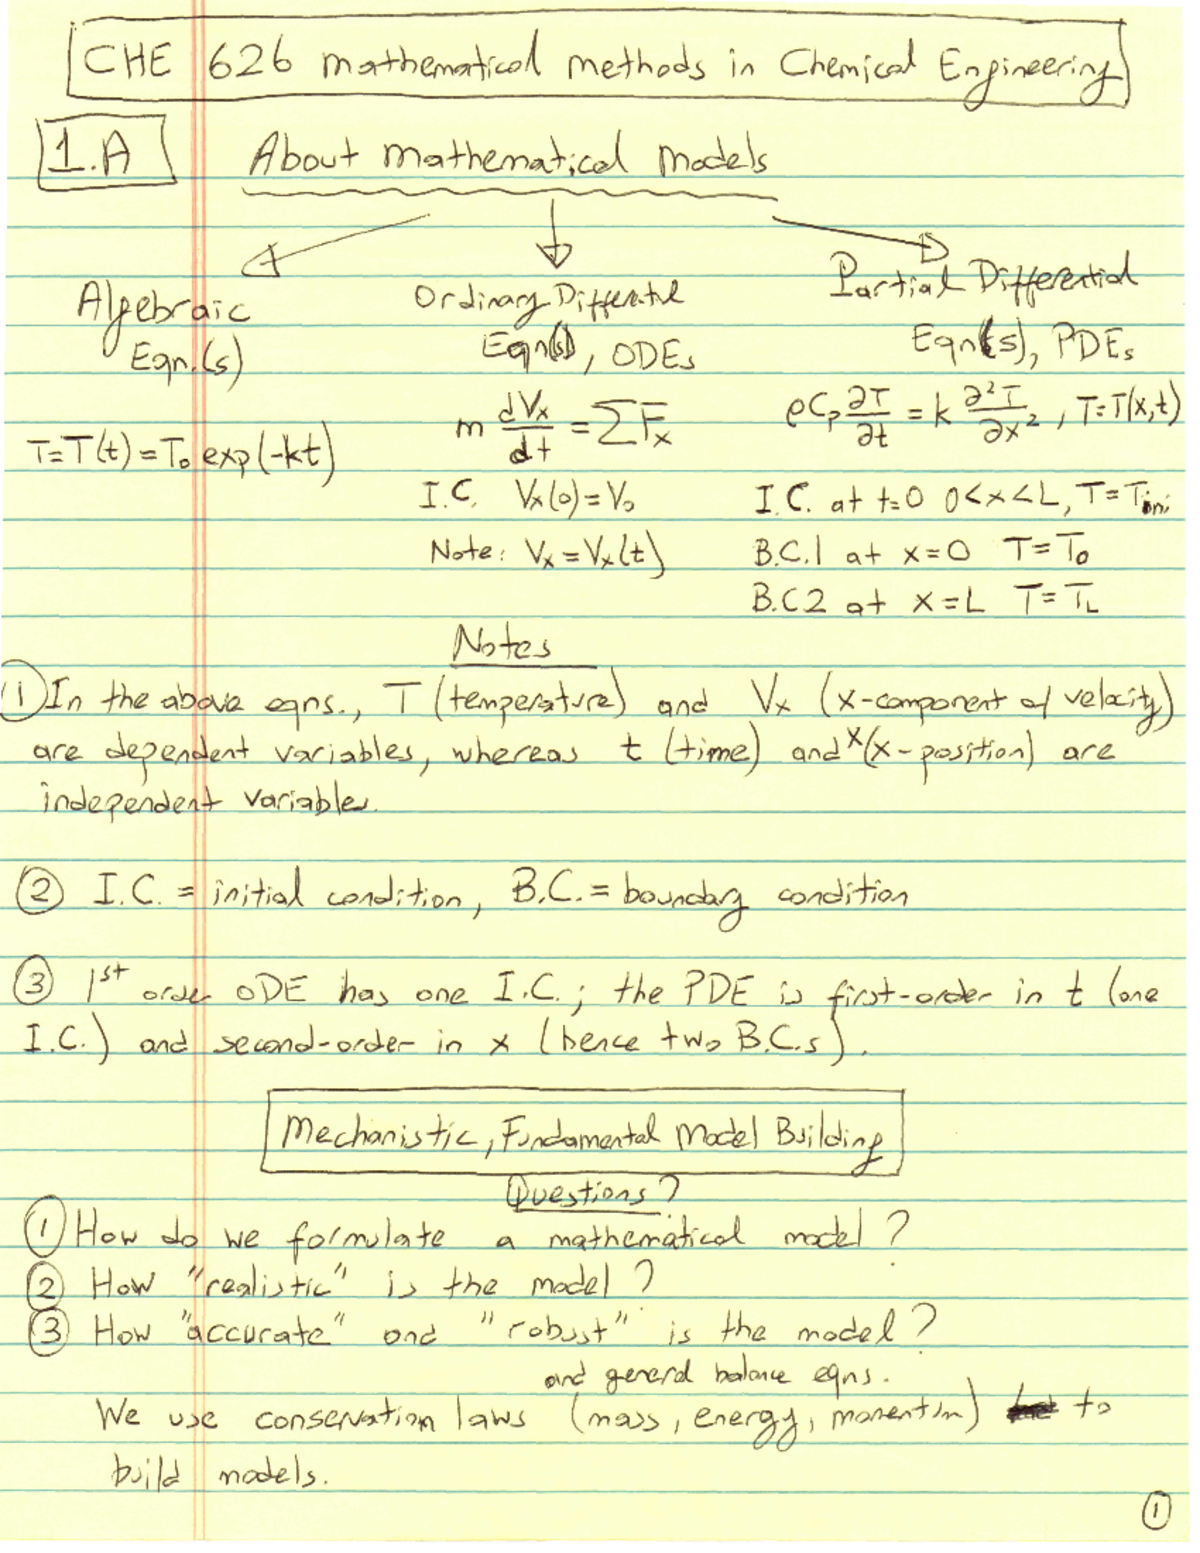 CHE 626 mathematical methods in Chemical Engineering
1.A About Mathematical Models
Algebraic
Eqn.(s)
T=T(t)=T₀ exp(-kt)
Ordinary Differential
Eqn(s), ODEs
m dVx/dt = ΣFx
I.C. Vx(0)=V₀
Note: Vx=Vx(t)
Partial Differential
Eqn(s), PDEs
ρCp ∂T/∂t = k ∂²T/∂x², T=T(x,t)
I.C. at t=0 0<x<L, T=Tini
B.C.1 at x=0 T=T₀
B.C2 at x=L T=TL
Notes
① In the above eqns., T (temperature) and Vx (x-component of velocity)
are dependent variables, whereas t (time) and x (x-position) are
independent variables.
② I.C. = initial condition, B.C. = boundary condition
③ 1st order ODE has one I.C.; the PDE is first-order in t (one
I.C.) and second-order in x (hence two B.C.s).
Mechanistic, Fundamental Model Building
Questions?
① How do we formulate a mathematical model?
② How "realistic" is the model?
③ How "accurate" and "robust" is the model?
and general balance eqns.
We use conservation laws (mass, energy, momentum) to
build models.
①